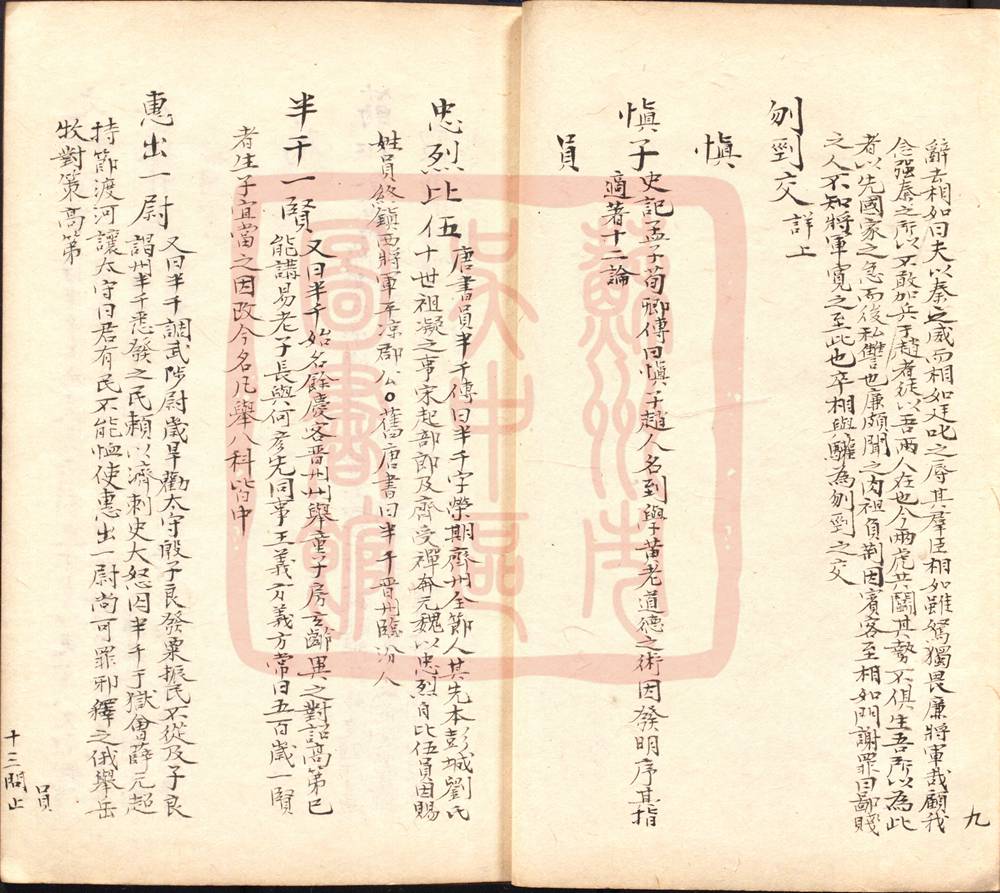 辭去相如曰夫以秦之威而相如廷叱之辱其羣臣相如雖駑獨畏廉將軍哉顧我
念强秦之所以不敢加兵于趙者徒以吾兩人在也今兩虎共鬬其勢不俱生吾所以為此
者以先國家之急而後私讐也廉頗聞之肉袒負荆因賓客至相如門謝罪曰鄙賤
之人不知將軍寬之至此也卒相與驩為刎剄之交
九
刎剄交 詳上
慎
慎子 史記孟子荀卿傳曰慎子趙人名到學黄老道德之術因發明序其指
適著十二論
員
忠烈比伍 唐書員半千傳曰半千字榮期齊州全節人其先本彭城劉氏
十世祖凝之事宋起部郎及齊受禪奔元魏以忠烈自比伍員因賜
姓員終鎮西將軍平凉郡公○舊唐書曰半千晋州臨汾人
半千一賢 又曰半千始名餘慶客晋州州舉童子房玄齡異之對詔高第已
能講易老子長與何彦先同事王義方義方常曰五百歲一賢
者生子宜當之因改今名凡舉八科皆中
惠出一尉 又曰半千調武陟尉歲旱勸太守殷子良發粟振民不從及子良
謁州半千悉發之民賴以濟刺史大怒囚半千于獄會薛元超
持節渡河讓太守曰君有民不能恤使惠出一尉尚可罪邪釋之俄舉岳
牧對策高第
員
十三問止
蘇州市
吴中區
圖書館